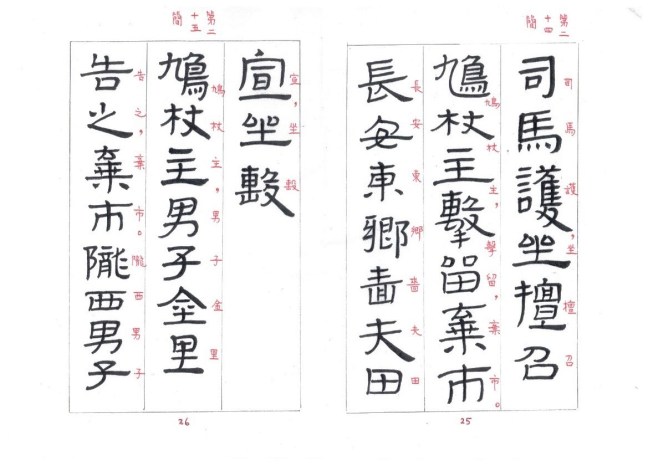 第二十四簡
司馬護坐擅召
司馬護,坐擅召
鳩杖主擊留棄市
鳩杖主,擊留,棄市。
長安東鄉嗇夫田
長安東鄉嗇夫田
25
第二十五簡
宣坐毄
宣,坐毄
鳩杖主男子金里
鳩杖主,男子金里
告之棄市隴西男子
告之,棄市。隴西男子
26